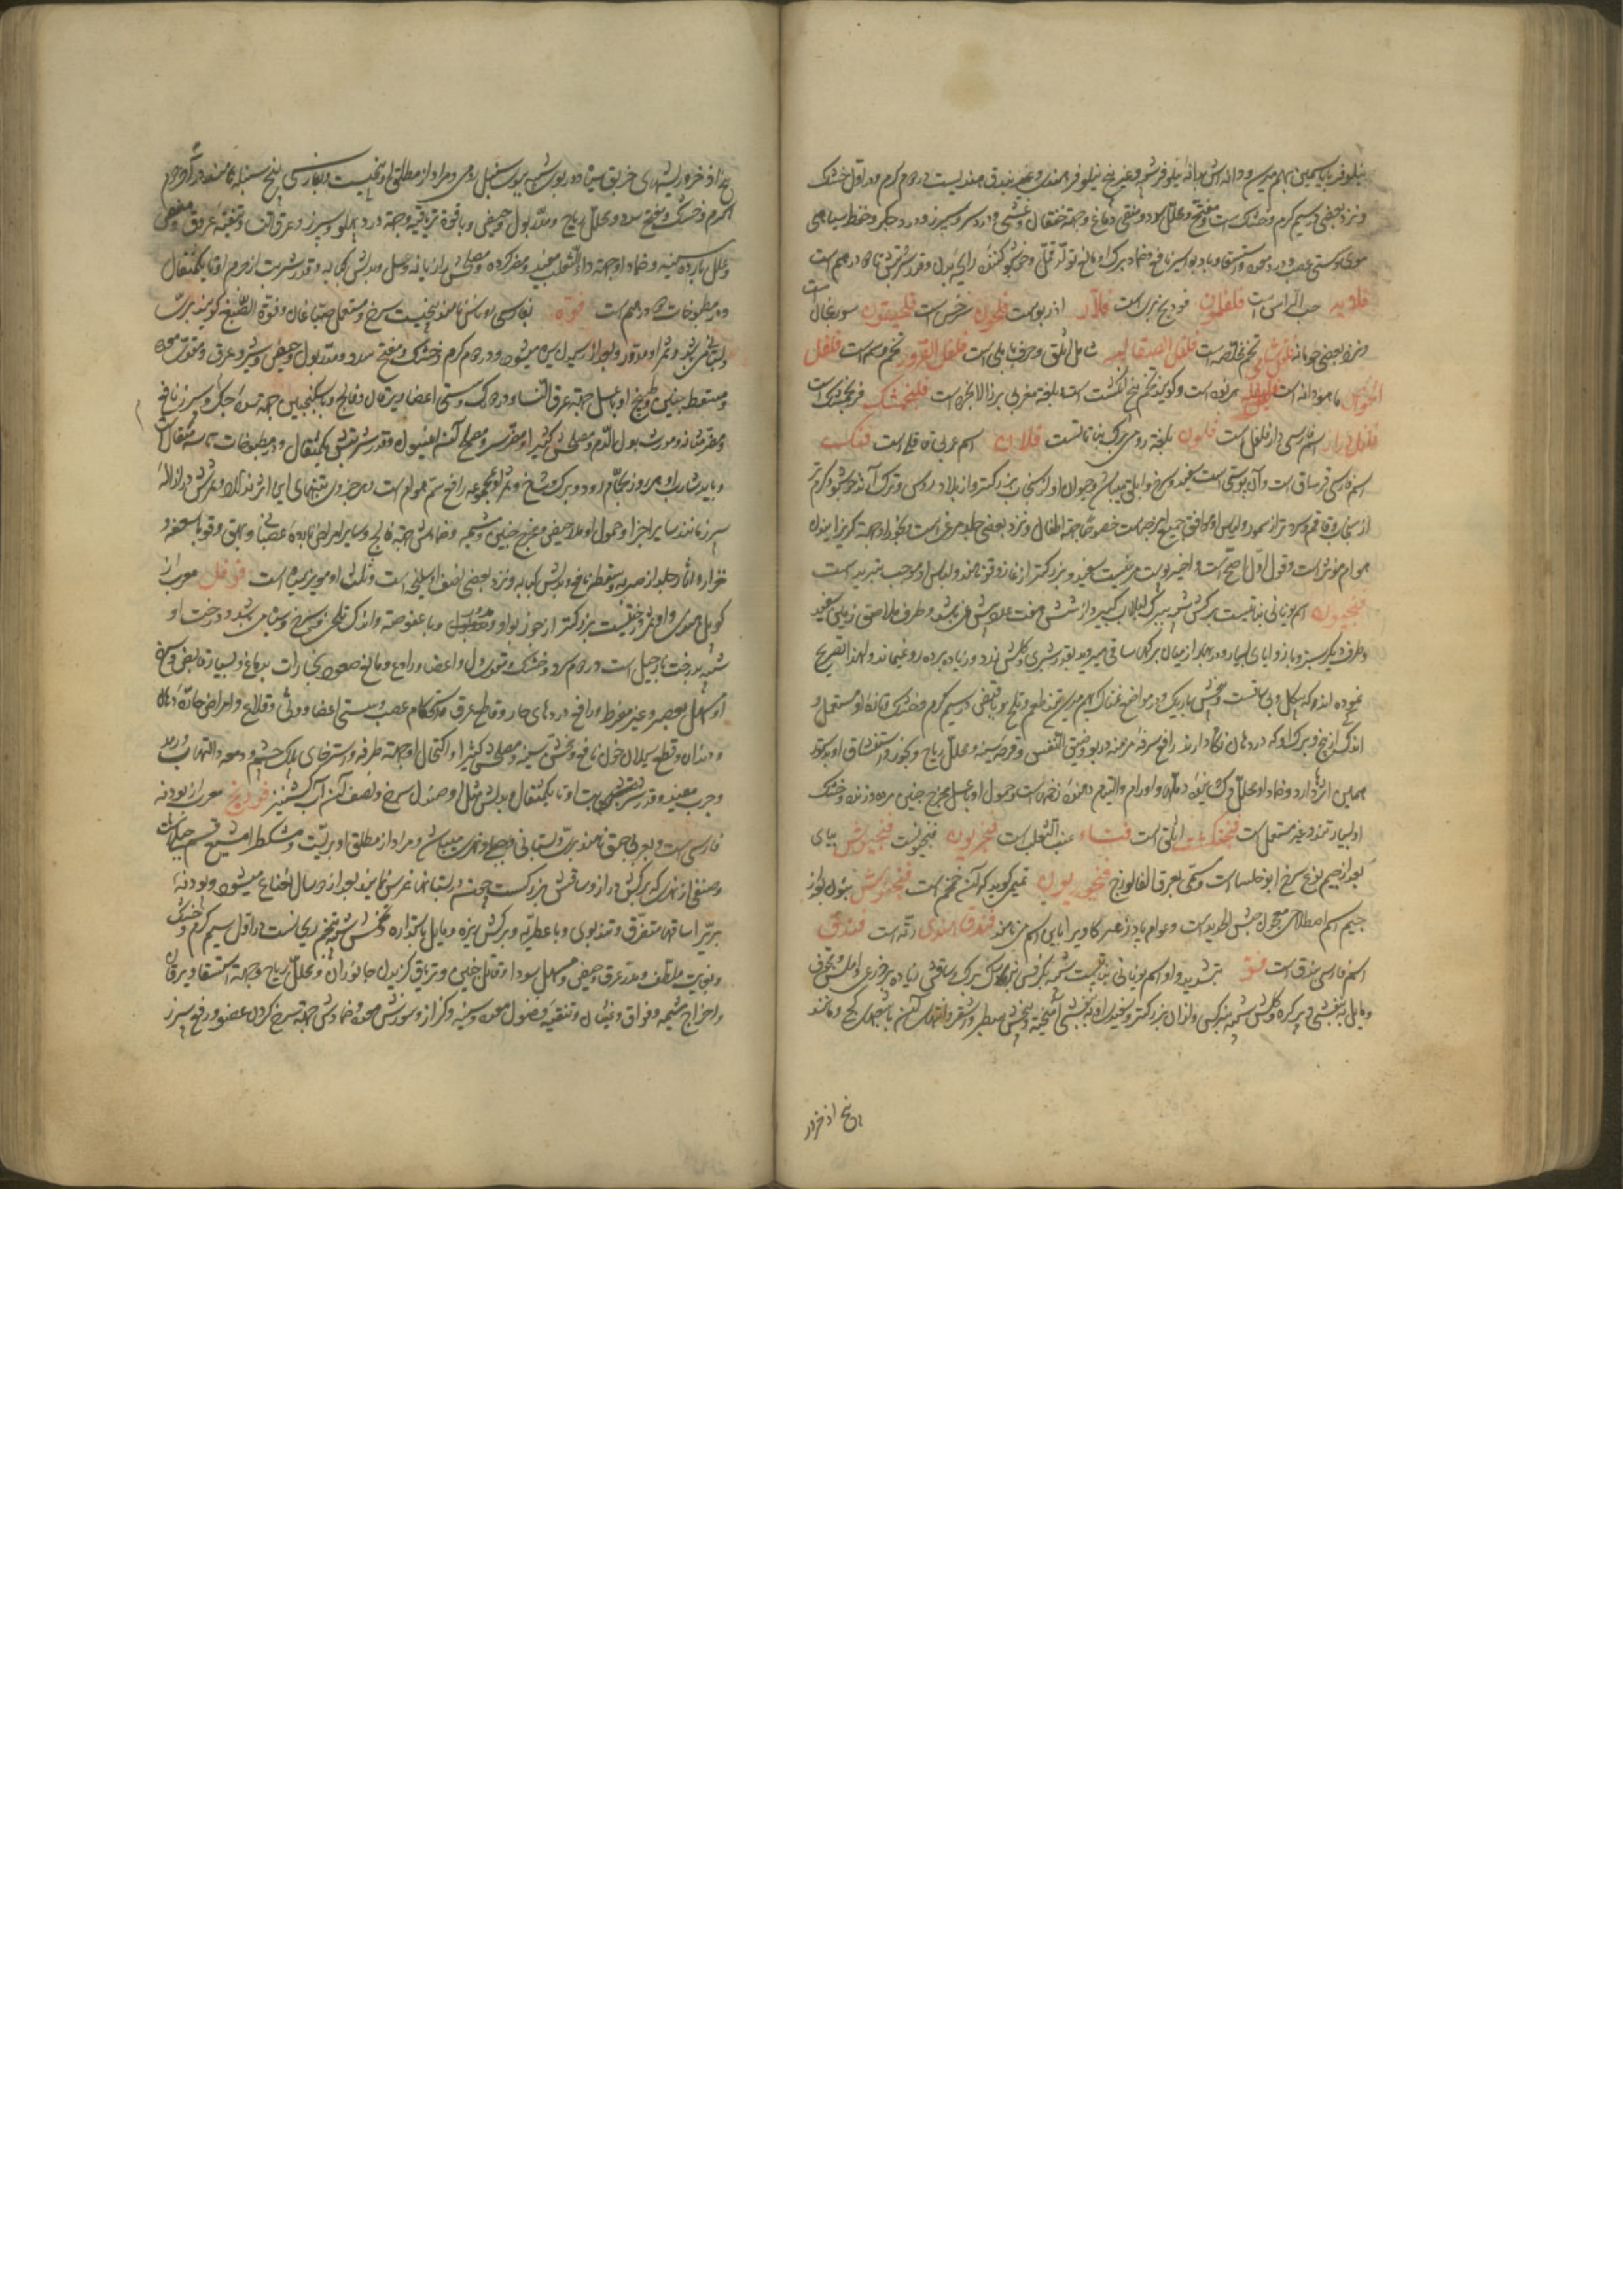 نیلوفر و یاسمین بهم میرسد و دانه اش بدانهٔ نیلوفر شبیه و غیر بیخ نیلوفر هندی و غیر بندق هندیست در دوم گرم و در اول خشک
و نزد بعضی در سیم گرم و خشک است مفتح و محلل سدد و منقی دماغ و جهة خفقان و غشی و درد سر و سپرز و درد جگر و
و سستی عصب و درد معده و استسقا و باد بواسیر نافع و ضماد برگ او مانع تولد قمل و خوشبو کننده و قدر شربتش تا دو درهم است
فلاسه حب الراس است فلفلون فودنج بری است فلار اذربو است فلحون خس است فلحیقون سورنجان است
و نزد بعضی تخم است فلفل الصقالبه است فلفل القرود تخم است فلفل
اخوال ماهودانه است فلیفله هرنوه است و گویند تخم پنج انگشت است و بلغة مغربی بزر الانجره است فلنجمشک فرنجمشک است
فلفل دراز اسم فارسی دار فلفل است فلون بلغة رومی نباتیست فلان اسم عربی است فنک
اسم فارسی است و آن پوستی است سفید و سرخ و ابلق میباشد و حیوان او از سنجاب بزرگتر و از بلاد روس و ترک آرند خوشبو و گرم تر
از سنجاب و قاقم و سرد تر از سمور و لباس او موافق جمیع امزجه است خصوصا جهة اطفال و نزد بعضی جلد مرغی است و بخور او جهة گریزانیدن
هوام مؤثر است و قول اول اصح است و اخیر پوست مرغیست سفید و بزرگتر از غاز و قو نامند و لباس او موجب تبرید است
فنجیون اسم یونانی نباتیست برگش شبیه ببرگ لبلاب کبیر و از شش هفت عدد بیش نمیباشد و طرف ملاصق زمین سفید
و طرف دیگر سبز و با زوایای بسیار و در بهار از میان برگها ساقی میروید بقدر شبری و گلش زرد و زیاده بر ده روز نمیماند و لهذا
نموده اند که بی گل و بی ساقست و بیخش باریک و در مواضع نمناک بهم میرسد تند طعم و تلخ و با قبض در سیم گرم و خشک
اندک از بیخ و برگ او که در دهان نگاه دارند رافع سرفهٔ مزمنه و ربو و ضیق النفس و قرحهٔ سینه و محلل ریاح و بخور و استنشاق او بدستور
همین اثرها دارد و ضماد او محلل و گشاینده دملها و اورام و التیام دهندهٔ زخمهاست و حمول او با عسل مخرج جنین مرده و زنده و خشک
او بسیار تند و غیر مستعمل است فنجنکشت اثلق است فنساء عنب الثعلب است فنجریون فنجیونست فنجیوش بیای
بعد از جیم نوع سرخ ابو خلسا است و مسمی بعرق الفالوذج فنجریون تمیمی گوید کوکن تخم است فنجنوش بنون بعد از
جیم اسم اصطلاحی معجون خبث الحدید است و عوام پادزهر گاو را باین اسم می نامند فندق هندی رته است فندق
اسم فارسی بندق است فو بتشدید واو اسم یونانی نباتیست شبیه بکرفس بزرگ برگ و ساقش زیاده بر ذرعی و املس و مجوف
و مایل به بنفشی و پر گره و گلش شبیه بنرگس و از آن بزرگتر و سفیدی او به بنفشی آمیخته و بیخش سطبر و از شعبهای آن باریشهای کج و مانند
بیخ اذخر
بیخ اذخر و ریشهای خربق سیاه و در بو شبیه ببوی سنبل رومی و مراد از مطلق او بیخیست و بفارسی بیخ سنبله نامند در آخر دوم
گرم و خشک و مفتح سدد و محلل ریاح و مدر بول و حیض و با قوة تریاقیه و جهة درد پهلو و سپرز و عرق النسا و تنقیهٔ عروق
و علل باردهٔ سینه و ضماد او جهة داء الثعلب مفید و مضر گرده و مصلحش رازیانه و عسل و بدلش کبابه و قدر شربت از جرم او تا یکمثقال
و در مطبوخات دو درهم است فوه بفارسی روناس نامند بیخیست سرخ و مستعمل صباغان و فوة الصبغ گویند بری
و بستانی میباشد و ثمر او مدور و بعد از رسیدن سیاه میشود و در دوم گرم و خشک و مفتح سدد و مدر بول و حیض و شیر و عرق و مقوی معده
و مسقط جنین و طبیخ او با عسل جهة عرق النسا و درد ورک و سستی اعضا و یرقان و فالج و با سکنجبین جهة سدهٔ جگر و سپرز نافع
و مضر مثانه و مورث بول الدم و مصلحش کتیرا و مضر سر و مصلح آن انیسون و قدر شربتش یکمثقال و در مطبوخات تا سه مثقال است
و باید شارب او هر روز بحمام رود و برگ و شاخ و ثمر او مجموعه رافع سم هوام است هر جزوی بتنهای این اثر ندارد و ثمرش در ازالهٔ
سپرز مانند سایر اجزا و حمول او مدر حیض و مخرج جنین و مشیمه و ضمادش جهة فالج و سایر امراض باردهٔ عصبانی و بهق و قوبا و سعفه و
خزاز و آثار جلد از ضربه و سقطه نافع و بدلش کبابه و نزد بعضی نصف او سلیخه است و ثلث او مویز سیاه است فوفل معرب از
کوپل هندی و او ثمر درختیست بزرگتر از جوز بوا و با عفوصة و اندک تلخی و سرخ و سیاه می باشد و درخت او
شبیه بدرخت نارجیل است در دوم سرد و خشک و مقوی دل و اعضا و رادع و مانع صعود بخارات بدماغ و بسیار قابض و
او مسهل بعصر و غیر مفرط و رافع دردهای حار و قاطع عرق و مستحکم عصب و سستی اعضا و ورثی و قلاع و امراض حارهٔ دهان
و دندان و قطع سیلان خون نافع و مخشن سینه و مصلحش کتیرا و اکتحال او جهة طرفه و استرخای پلک چشم و دمعه و التهاب و رمد
و جرب مفید و قدر شربتش تا یکمثقال و بدلش مثل او صندل سرخ و نصف آن آب گشنیز فودنج معرب از پودنه
فارسی است و بعربی حبق نامند بری و بستانی و جبلی و نهری میباشد و مراد از مطلق او بریست و مشکطرامشیع قسم جبلی است
و صنفی از نهری که برگش دراز و ساقش بزرگست در بستانها غرس نمایند بعد از دو سال نعناع میشود و پودنهٔ
بری را ساقها متفرق و تند بوی و با عطریه و برگش ریزه و مایل باستداره و تخمش شبیه بتخم ریحانست در اول سیم گرم و خشک
و بغایت ملطف و مدر عرق و حیض و مسهل سودا و قاتل جنین و تریاق گزیدن جانوران و محلل ریاح و جهة استسقا و یرقان
و اخراج مشیمه و فواق و غثیان و تنقیهٔ فضول معده و سینه و کزاز و سوزش معده و ضمادش جهة سرخ کردن عضو و رفع سپرز